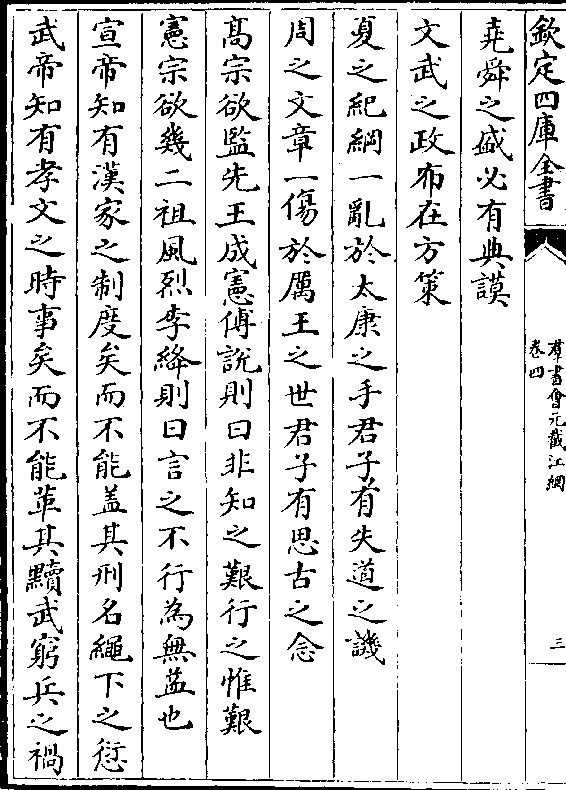 欽定四庫全書
羣書會元截江網
卷四
三
堯舜之盛必有典謨
文武之政布在方策
夏之紀綱一亂於太康之手君子有失道之譏
周之文章一傷於厲王之世君子有思古之念
髙宗欲監先王成憲傅說則曰非知之艱行之惟艱
憲宗欲幾二祖風烈李絳則曰言之不行為無益也
宣帝知有漢家之制度矣而不能盖其刑名繩下之愆
武帝知有孝文之時事矣而不能革其黷武窮兵之禍